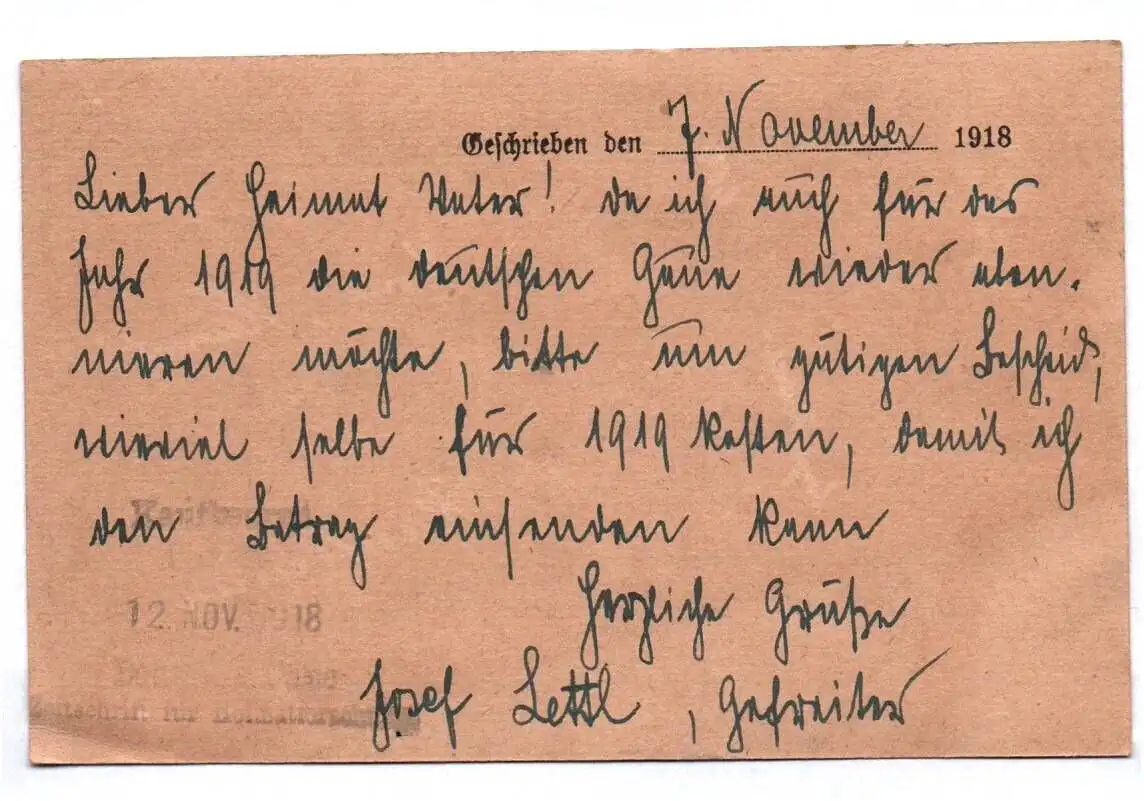 Geschrieben den 7. November 1918
Lieber Heimat Vater! da ich auch für das
Jahr 1919 die deutschen Gaue wieder abon-
nieren möchte, bitte um gütigen Bescheid,
wieviel selbe für 1919 kosten, damit ich
den Betrag einsenden kann
Herzliche Grüße
Josef Lettl, Gefreiter
Kaufbeuren
12. NOV. 1918
Zeitschrift für